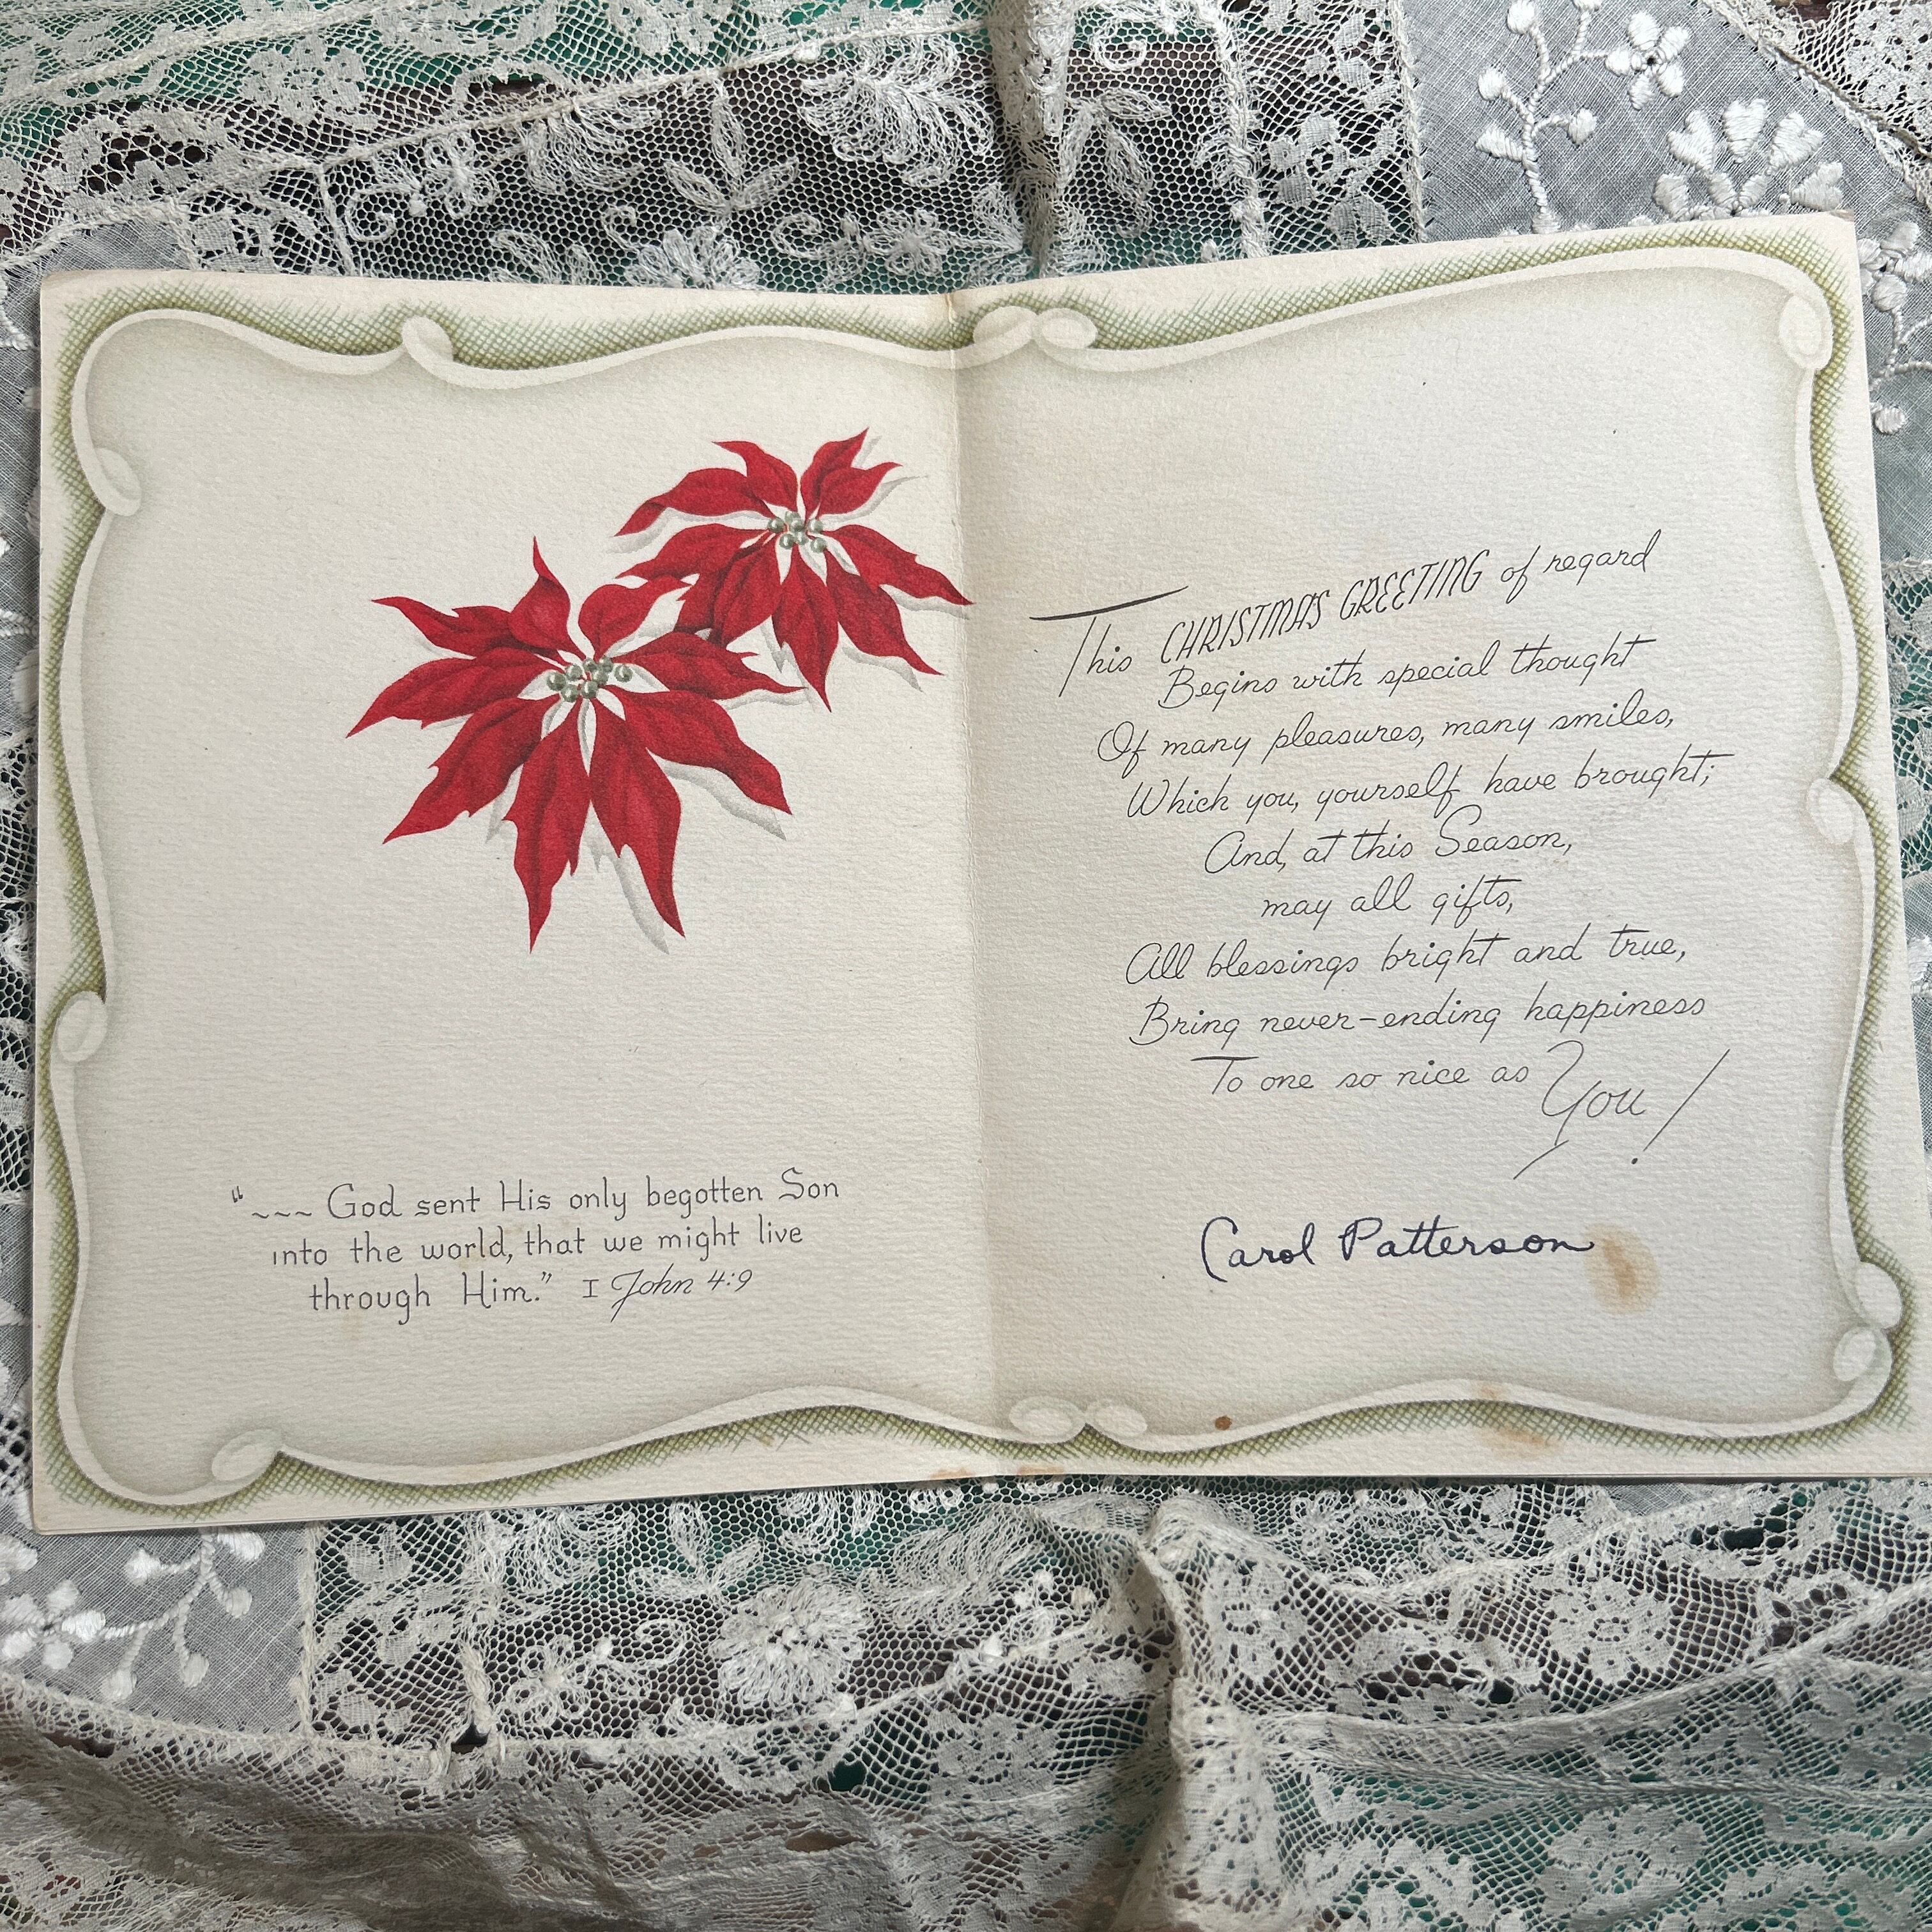 "~~~ God sent His only begotten Son
into the world, that we might live
through Him." I John 4:9
This CHRISTMAS GREETING of regard
Begins with special thought
Of many pleasures, many smiles,
Which you, yourself have brought;
And, at this Season,
may all gifts,
All blessings bright and true,
Bring never-ending happiness
To one so nice as You!
Carol Patterson